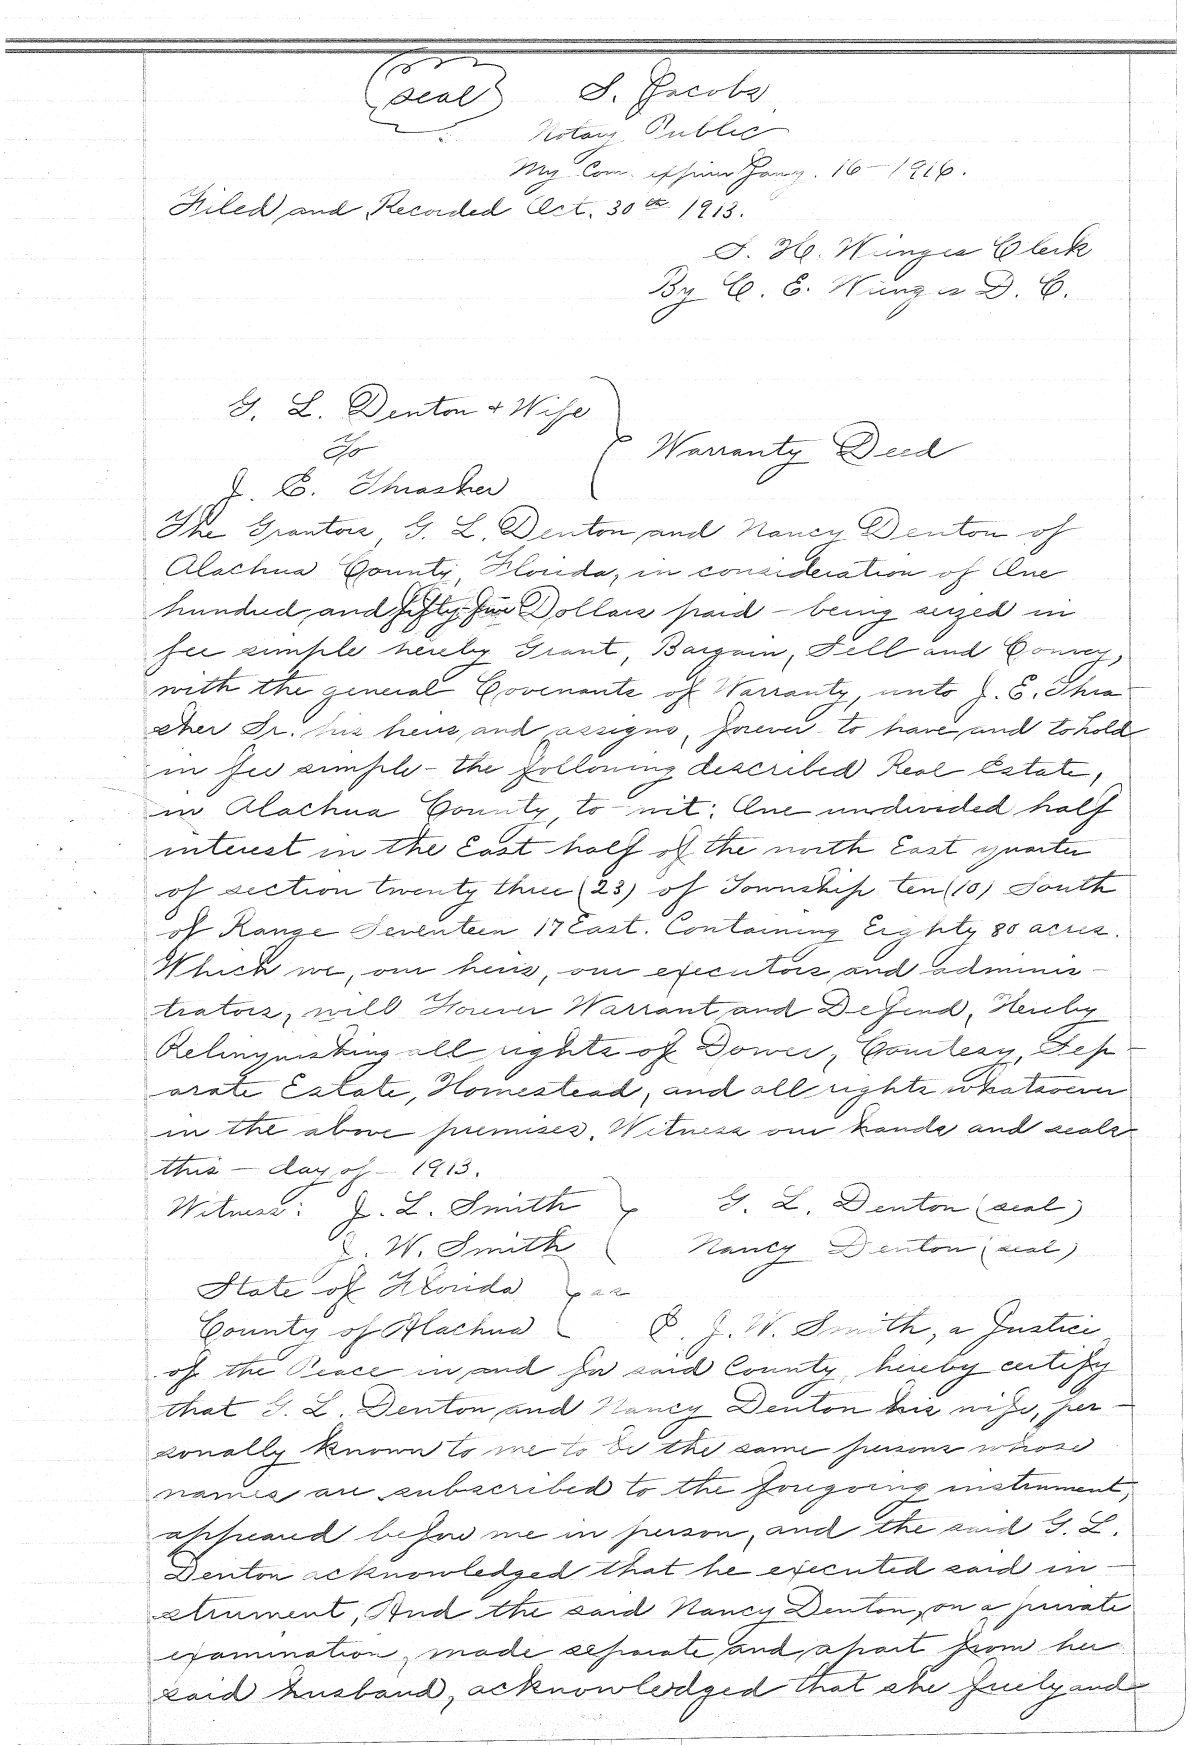 seal S. Jacobs
Notary Public
My Com. expires Jany. 16-1916.
Filed and Recorded Oct. 30th 1913.
S. H. Wienges Clerk
By C. E. Wienges D. C.
G. L. Denton + Wife
To
Warranty Deed
J. E. Thrasher
The Grantors, G. L. Denton and Nancy Denton of
Alachua County, Florida, in consideration of One
hundred and fifty-five Dollars paid - being seized in
fee simple hereby Grant, Bargain, Sell and Convey,
with the general Covenants of Warranty, unto J. E. Thra-
sher Sr. his heirs and assigns, forever to have and to hold
in fee simple - the following described Real Estate,
in Alachua County, to-wit: One undivided half
interest in the East half of the north East quarter
of section twenty three (23) of Township ten (10) South
of Range Seventeen 17 East. Containing Eighty 80 acres.
Which we, our heirs, our executors and adminis-
trators, will Forever Warrant and Defend, Hereby
Relinquishing all rights of Dower, Courtesy, Sep-
arate Estate, Homestead, and all rights whatsoever
in the above premises. Witness our hands and seals
this - day of - 1913.
Witness: J. L. Smith G. L. Denton (seal)
J. W. Smith Nancy Denton (seal)
State of Florida ss
County of Alachua J. W. Smith, a Justice
of the Peace in and for said County, hereby certify
that G. L. Denton and Nancy Denton his wife, per-
sonally known to me to be the same persons whose
names are subscribed to the foregoing instrument,
appeared before me in person, and the said G. L.
Denton acknowledged that he executed said in-
strument, And the said Nancy Denton, on a private
examination, made separate and apart from her
said husband, acknowledged that she freely and